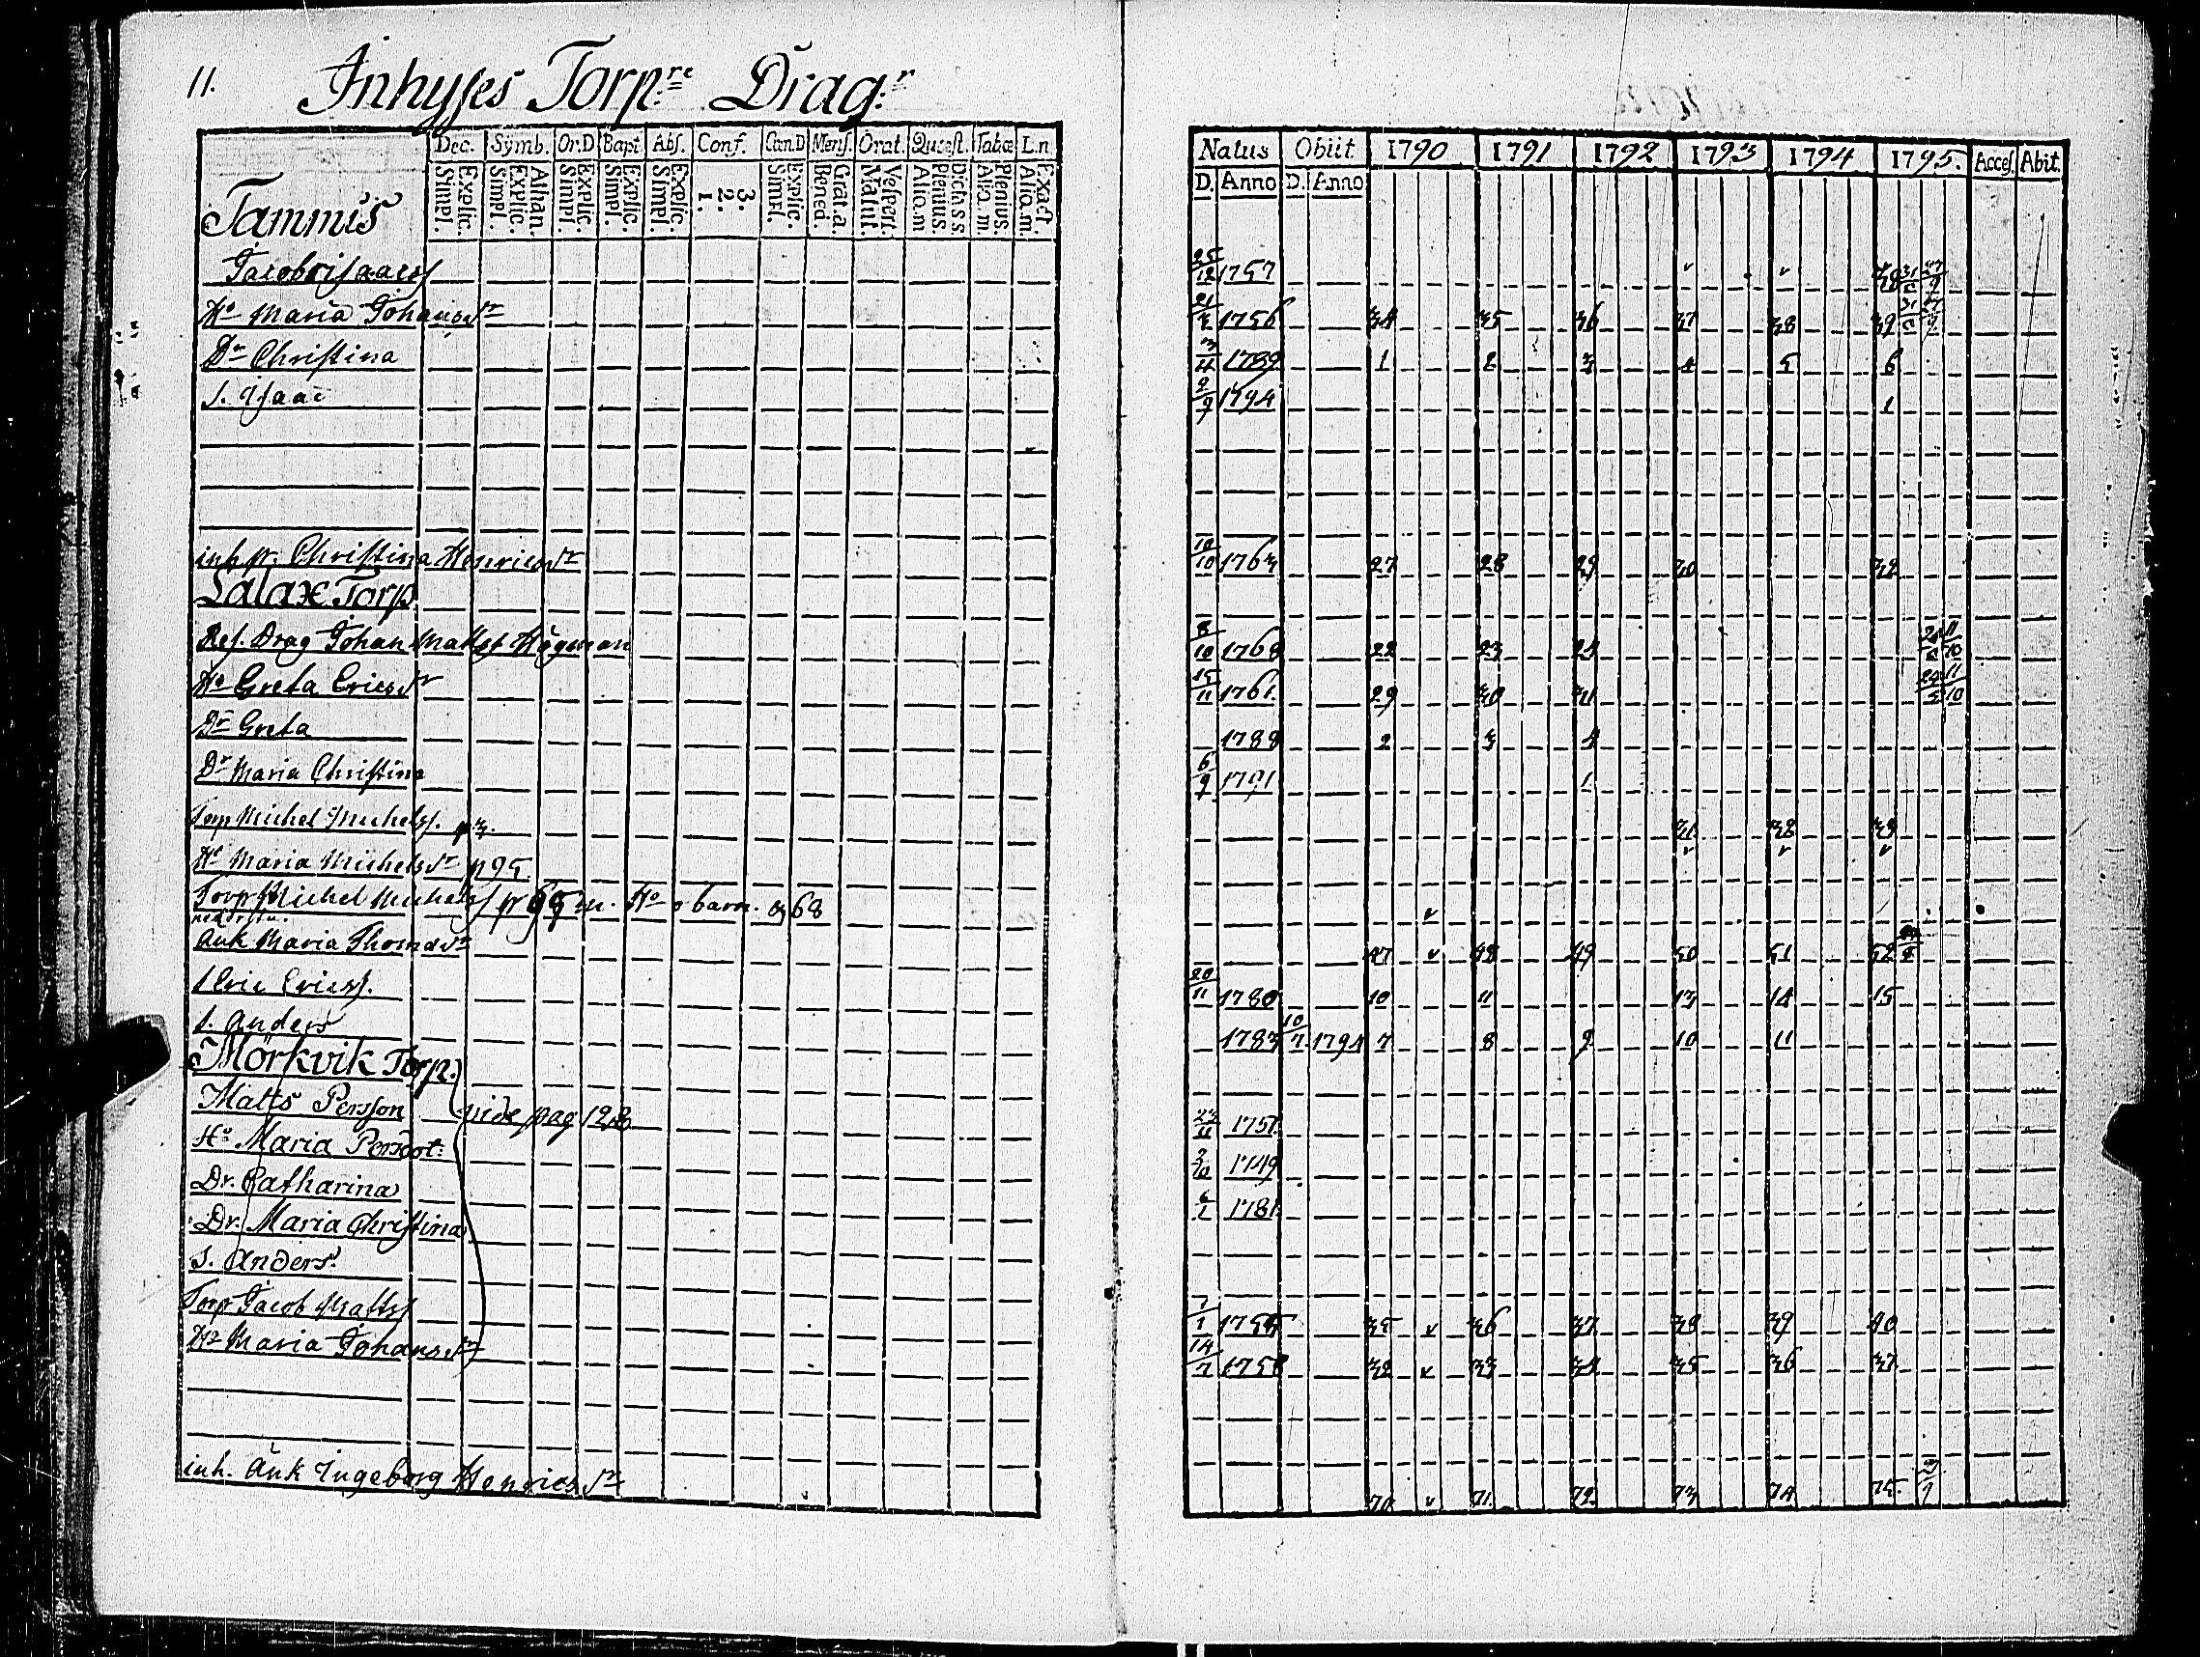 11. Inhyses Torp:re Drag:r
Dec. Symb. Or.D Bapt Abs. Conf. Cæn.D Mens. Orat. Quæst. Tabæ L.n
Explic. Simpl. Athan. Explic. Simpl. Explic. Simpl. Explic. Simpl. Explic. Simpl. 3. 2. 1. Explic. Simpl. Grat.a. Bened. Vespert. Matut. Dicta s.s. Plenius. Aliq.m Plenius. Aliq.m. Exact. Aliq.m.
Natus Obiit. 1790 1791 1792 1793 1794 1795. Acces. Abit.
D. Anno D. Anno
Tammis
Jacob Isaacs 25/12 1757 v v
Ho Maria Johansdr 1756 34 35 36 37 38 39
Dr Christina 3/4 1789 1 2 3 4 5 6
S. Isaac 2/9 1794 1
inh pr. Christina Henricsdr 10/10 1763 27 28 29 30 32
Lalax Torp.
Res. Drag Johan Matts Högman 8/10 1768 22 23 24
Ho Greta Ericsdr 15/11 1761. 29 30 31 11/10
Dr Greta 1788 2 3 4
Dr Maria Christina 6/9 1791 1
Torp Michel Michelss. 31 32 33
Ho Maria Michelsdr p 95. v v v
Torp Michel Michelss p 65 m. Ho o barn. og 68 v
Änk Maria Thomasdr 47 v 48 49 50 51 52
S Eric Ericss. 20/11 1780 10 11 13 14 15
S. Anders 1783 10/7 1794 7 8 9 10 11
Mörkvik Torp.
Matts Persson vide pag 128 23/11 1751.
Ho Maria Persdot: 1749
Dr. Catharina 6/1 1781.
Dr. Maria Christina
S. Anders.
Torp Jacob Mattss 7/1 1754 35 v 36 37 38 39 40
Ho Maria Johansdr 14/7 1758 32 v 33 34 35 36 37
inh. Änk Ingeborg Henricsdr 70 v 71. 72. 73 74 75.